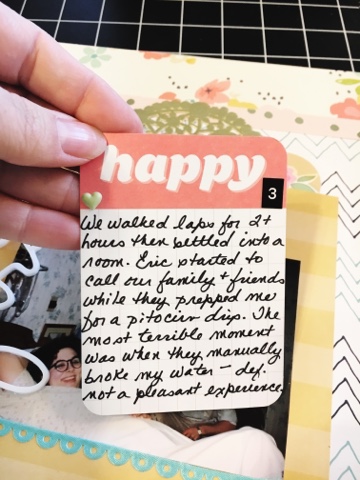 happy
3
We walked laps for 2+
hours then settled into a
room. Eric started to
call our family + friends
while they prepped me
for a pitocin drip. The
most terrible moment
was when they manually
broke my water – def.
not a pleasant experience.